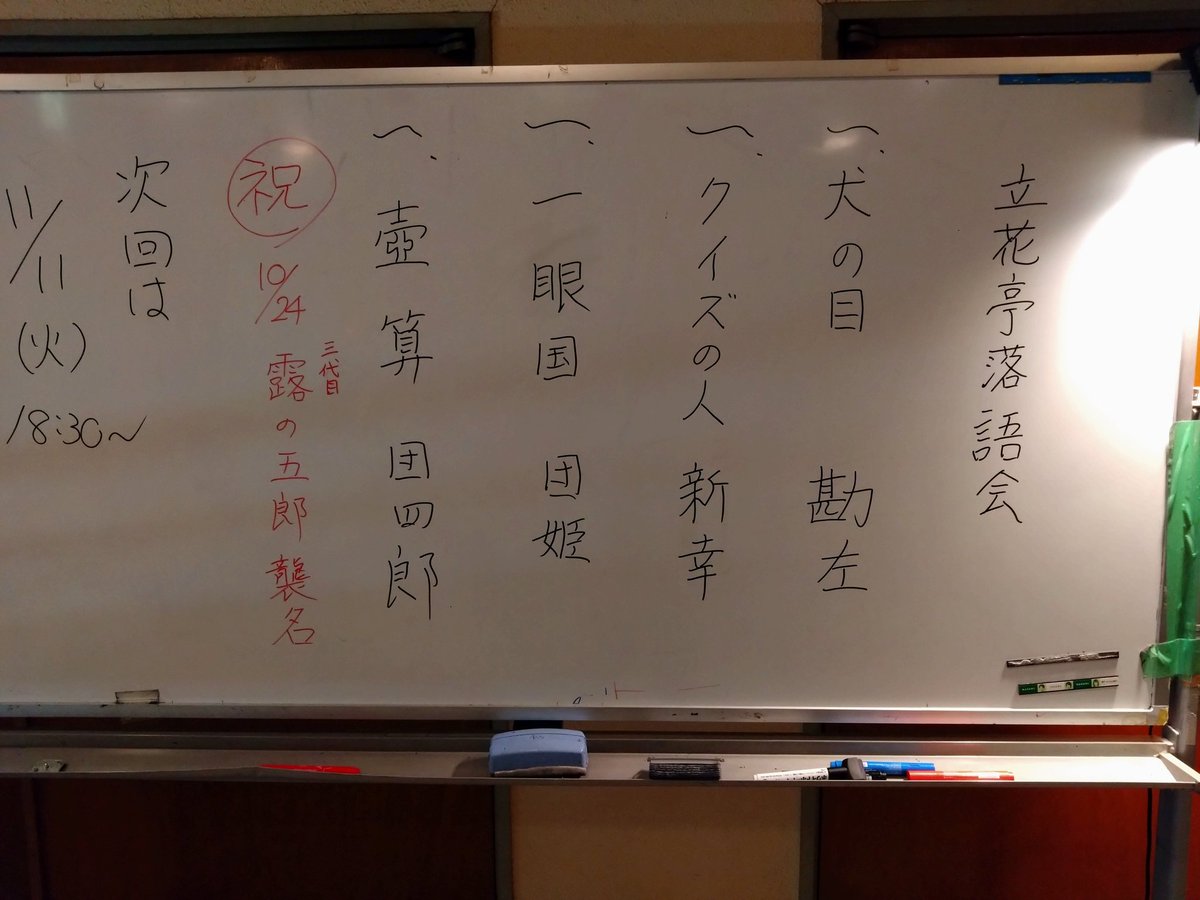 立花亭落語会
一、犬の目 勘左
一、クイズの人 新幸
一、一眼国 団姫
一、壺算 団四郎
祝 10/24 三代目 露の五郎 襲名
次回は
11/11
(火)
18:30〜